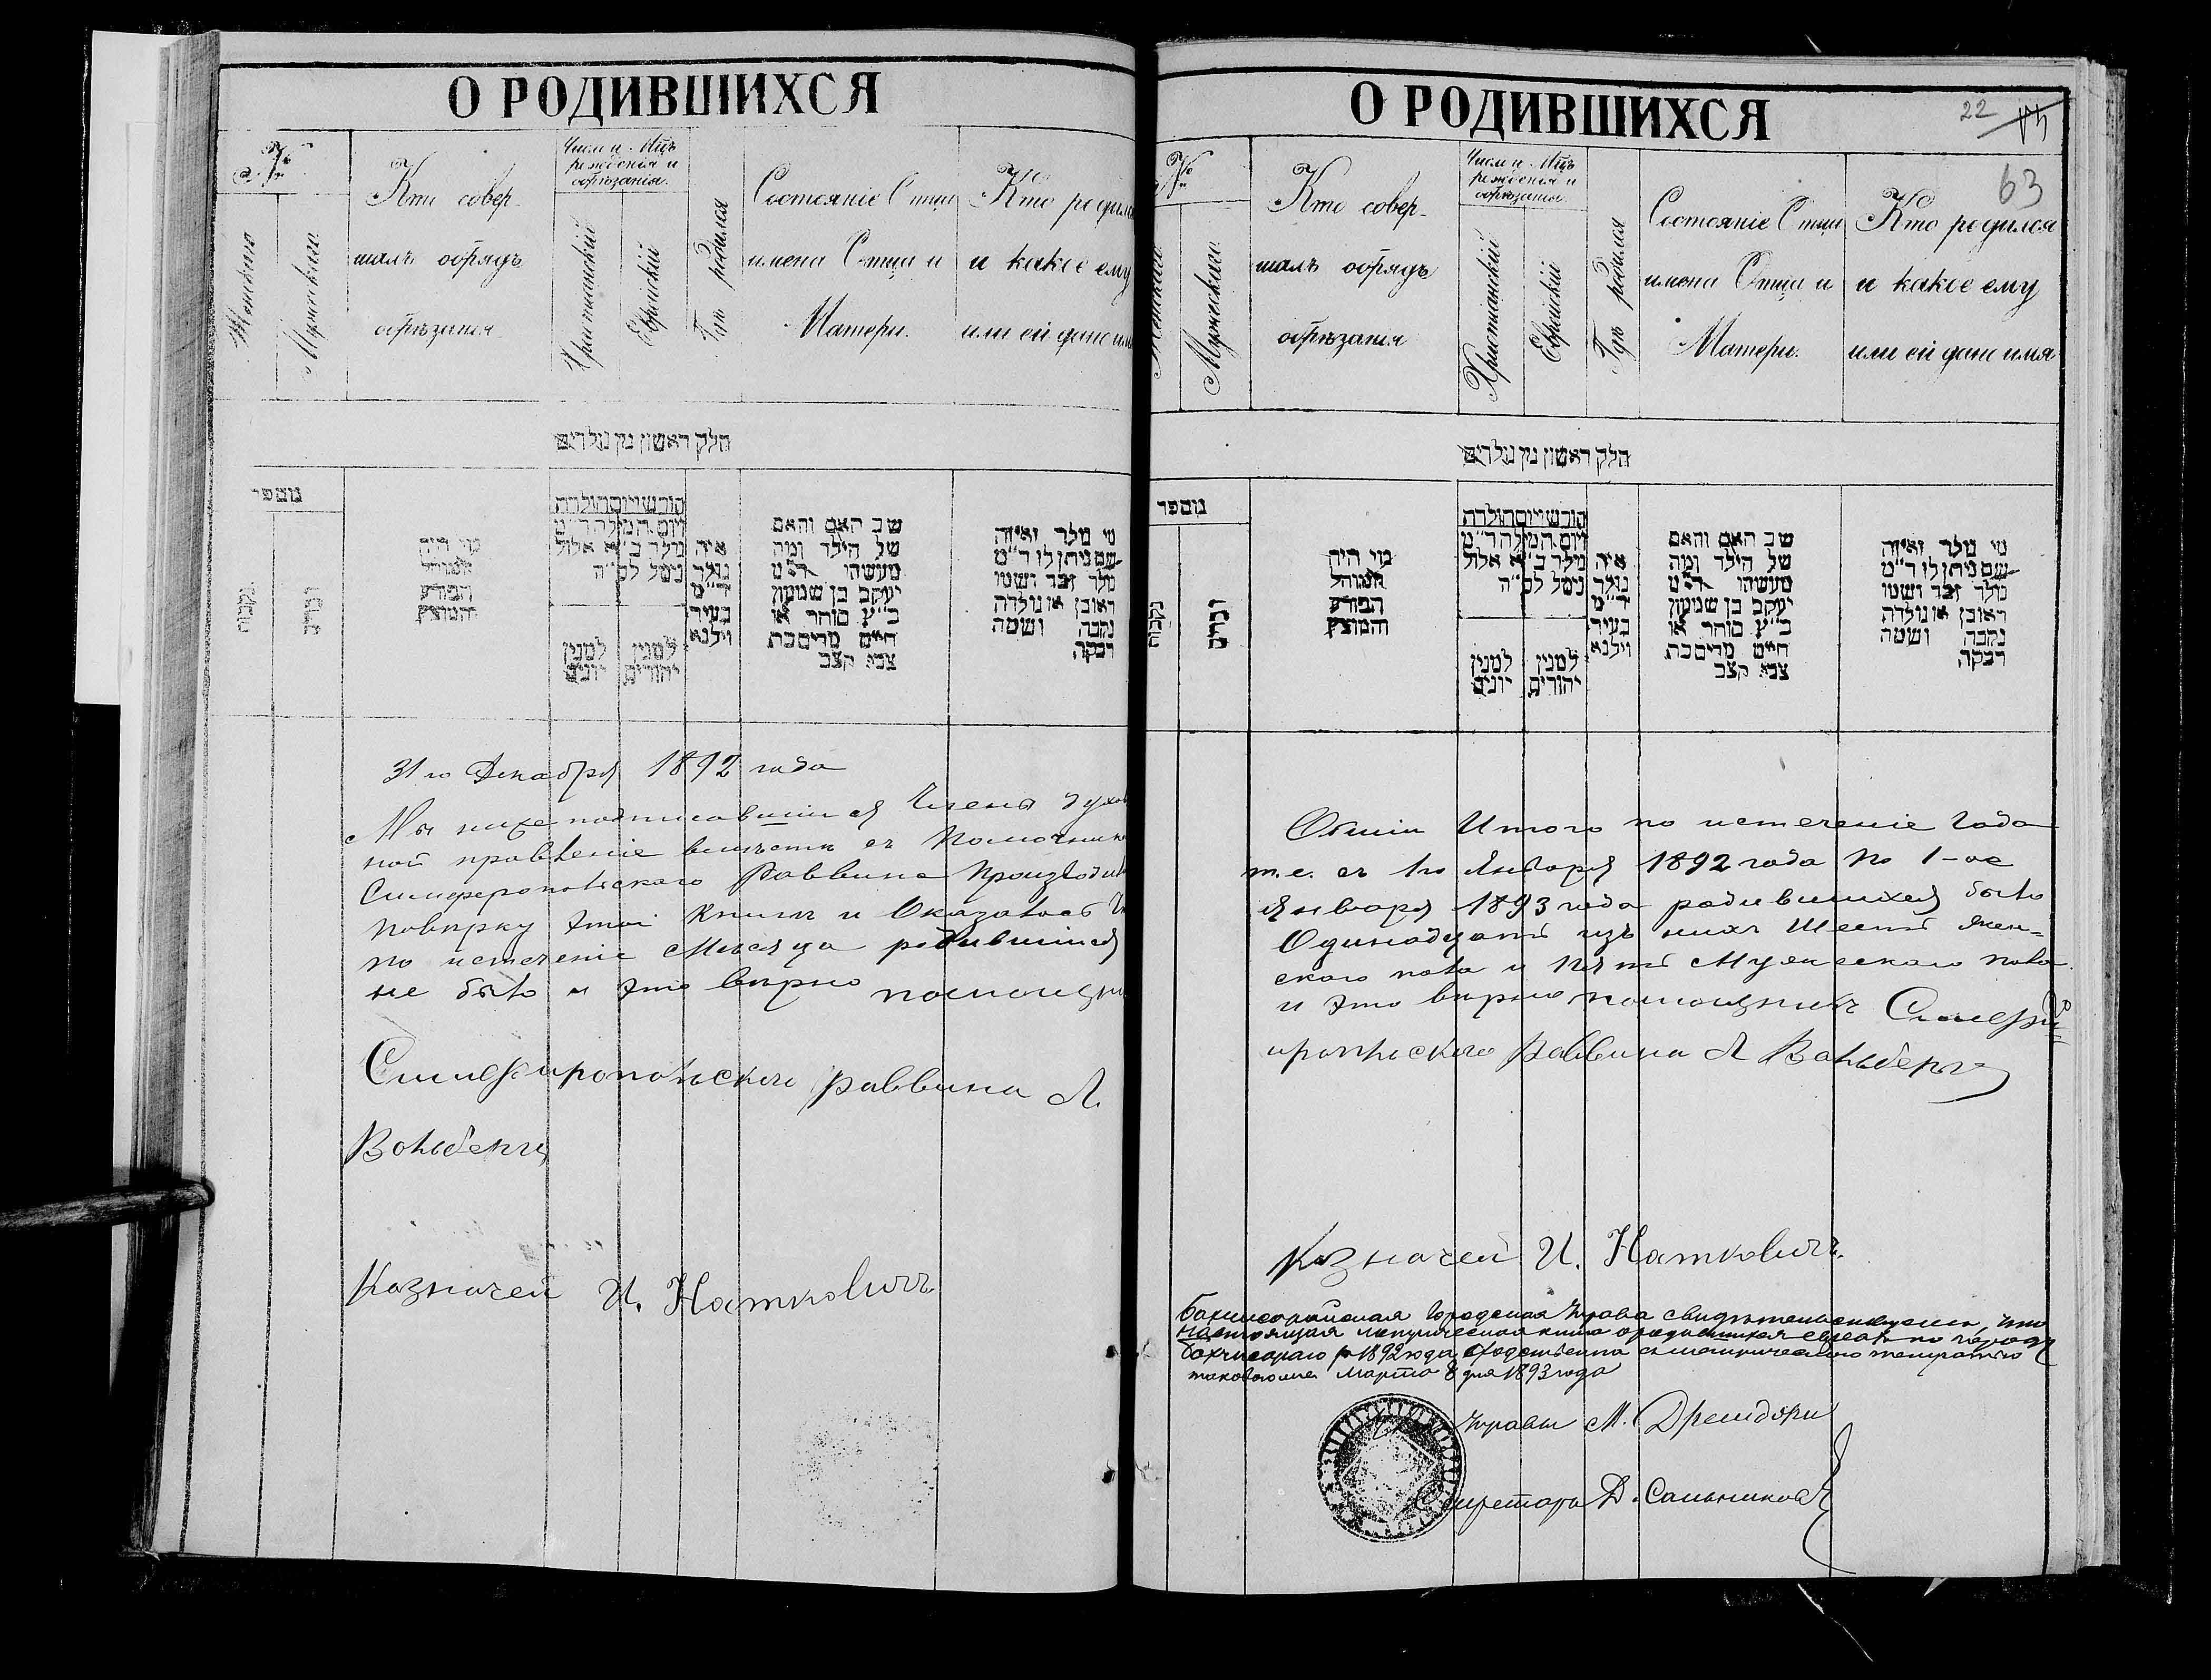 О РОДИВШИХСЯ
№
Женскаго
Мужескаго
Кто совер-
шалъ обрядъ
обрѣзанія
Числа и Мцъ
рожденія и
обрѣзанія.
Христіанскій
Еврейскій
Гдѣ родился
Состояніе Отца
имена Отца и
Матери.
Кто родился
и какое ему
или ей дано имя
חלק ראשון מן נולדים
נומפר
נקבות
זכרים
מי היה
המוהל
הפורע
והמוצץ
חודש ויום הולדת
ויום המילה ד״מ
נולד ב״א אלול
נימל לס״ה
למנין
יונים
למנין
יהודים
איה
נולד
ד״מ
בעיר
ווילנא
שב האם והאם
של הילד ומה
מעשהו ד״מ
יעקב בן שמעון
כ״ץ סוחר או
חיים מרים בת
צבי קצב
מי נולד ואיזה
שם ניתן לו ד״מ
נולד זכר ושמו
ראובן או נולדה
נקבה ושמה
רבקה
31 го Декабря 1892 года
Мы ниже подписавшіися Члены духов
ной правленіе вмѣстѣ съ Помочник
Симферопольскаго Раввина Производили
повѣрку этой Книги и Оказалось Что
по истеченіе Мѣсяца родившійся
не было и это вѣрно помощни
Симферопольскаго раввина Л.
Вольберга
Казначей И. Наткович
О РОДИВШИХСЯ
22
63
№
Женскаго
Мужескаго
Кто совер-
шалъ обрядъ
обрѣзанія
Числа и Мцъ
рожденія и
обрѣзанія.
Христіанскій
Еврейскій
Гдѣ родился
Состояніе Отца
имена Отца и
Матери.
Кто родился
и какое ему
или ей дано имя
חלק ראשון מן נולדים
נומפר
נקבות
זכרים
מי היה
המוהל
הפורע
והמוצץ
חודש ויום הולדת
ויום המילה ד״מ
נולד ב״א אלול
נימל לס״ה
למנין
יונים
למנין
יהודים
איה
נולד
ד״מ
בעיר
ווילנא
שב האם והאם
של הילד ומה
מעשהו ד״מ
יעקב בן שמעון
כ״ץ סוחר או
חיים מרים בת
צבי קצב
מי נולד ואיזה
שם ניתן לו ד״מ
נולד זכר ושמו
ראובן או נולדה
נקבה ושמה
רבקה
Общій Итого по истеченіе Года
т.е. съ 1го Января 1892 года по 1-ое
Января 1893 года родившихся было
Одинадцать изъ нихъ Шесть жен-
скаго пола и Пять Мужескаго пола
и это вѣрно помощникъ Симфе
ропольскаго Раввина Л Вольбергъ
Казначей И. Наткович
Бахчисарайская Городская Управа свидѣтельствуетъ, что
настоящая метрическая книга о родившихся евреяхъ по городу
Бахчисараю за 1892 годъ сходственна съ метрическою тетратью
таковою же Марта 8 дня 1893 года
Управы М.
Секретарь Д. Сальников